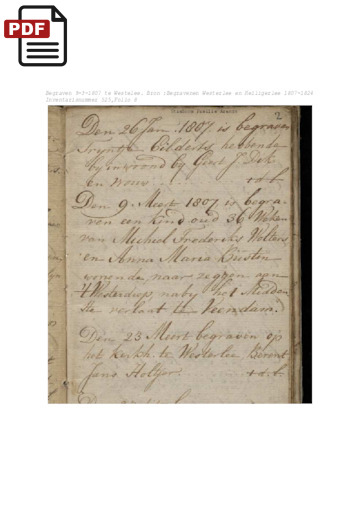 PDF
Begraven 9-3-1807 te Westelee, Bron :Begravenen Westerlee en Heiligerlee 1807-1824
Inventarisnummer 525,Folio 2
2
Den 26 Jan. 1807. is begraven
Tryntje hebbende
by inwoond by
en vrouw
Den 9. Meert 1807 is begra-
ven een kind oud 36 Weken
van Michiel Frederiks Wolters
en Anna Maria Büsten
wonende, naar zeggen aan
't Westerdiep, naby het Midden
ste verlaat te Veendam.
Den 23 Meert begraven op
het kerkh. te Westerlee Berent
Jans Holtjer.